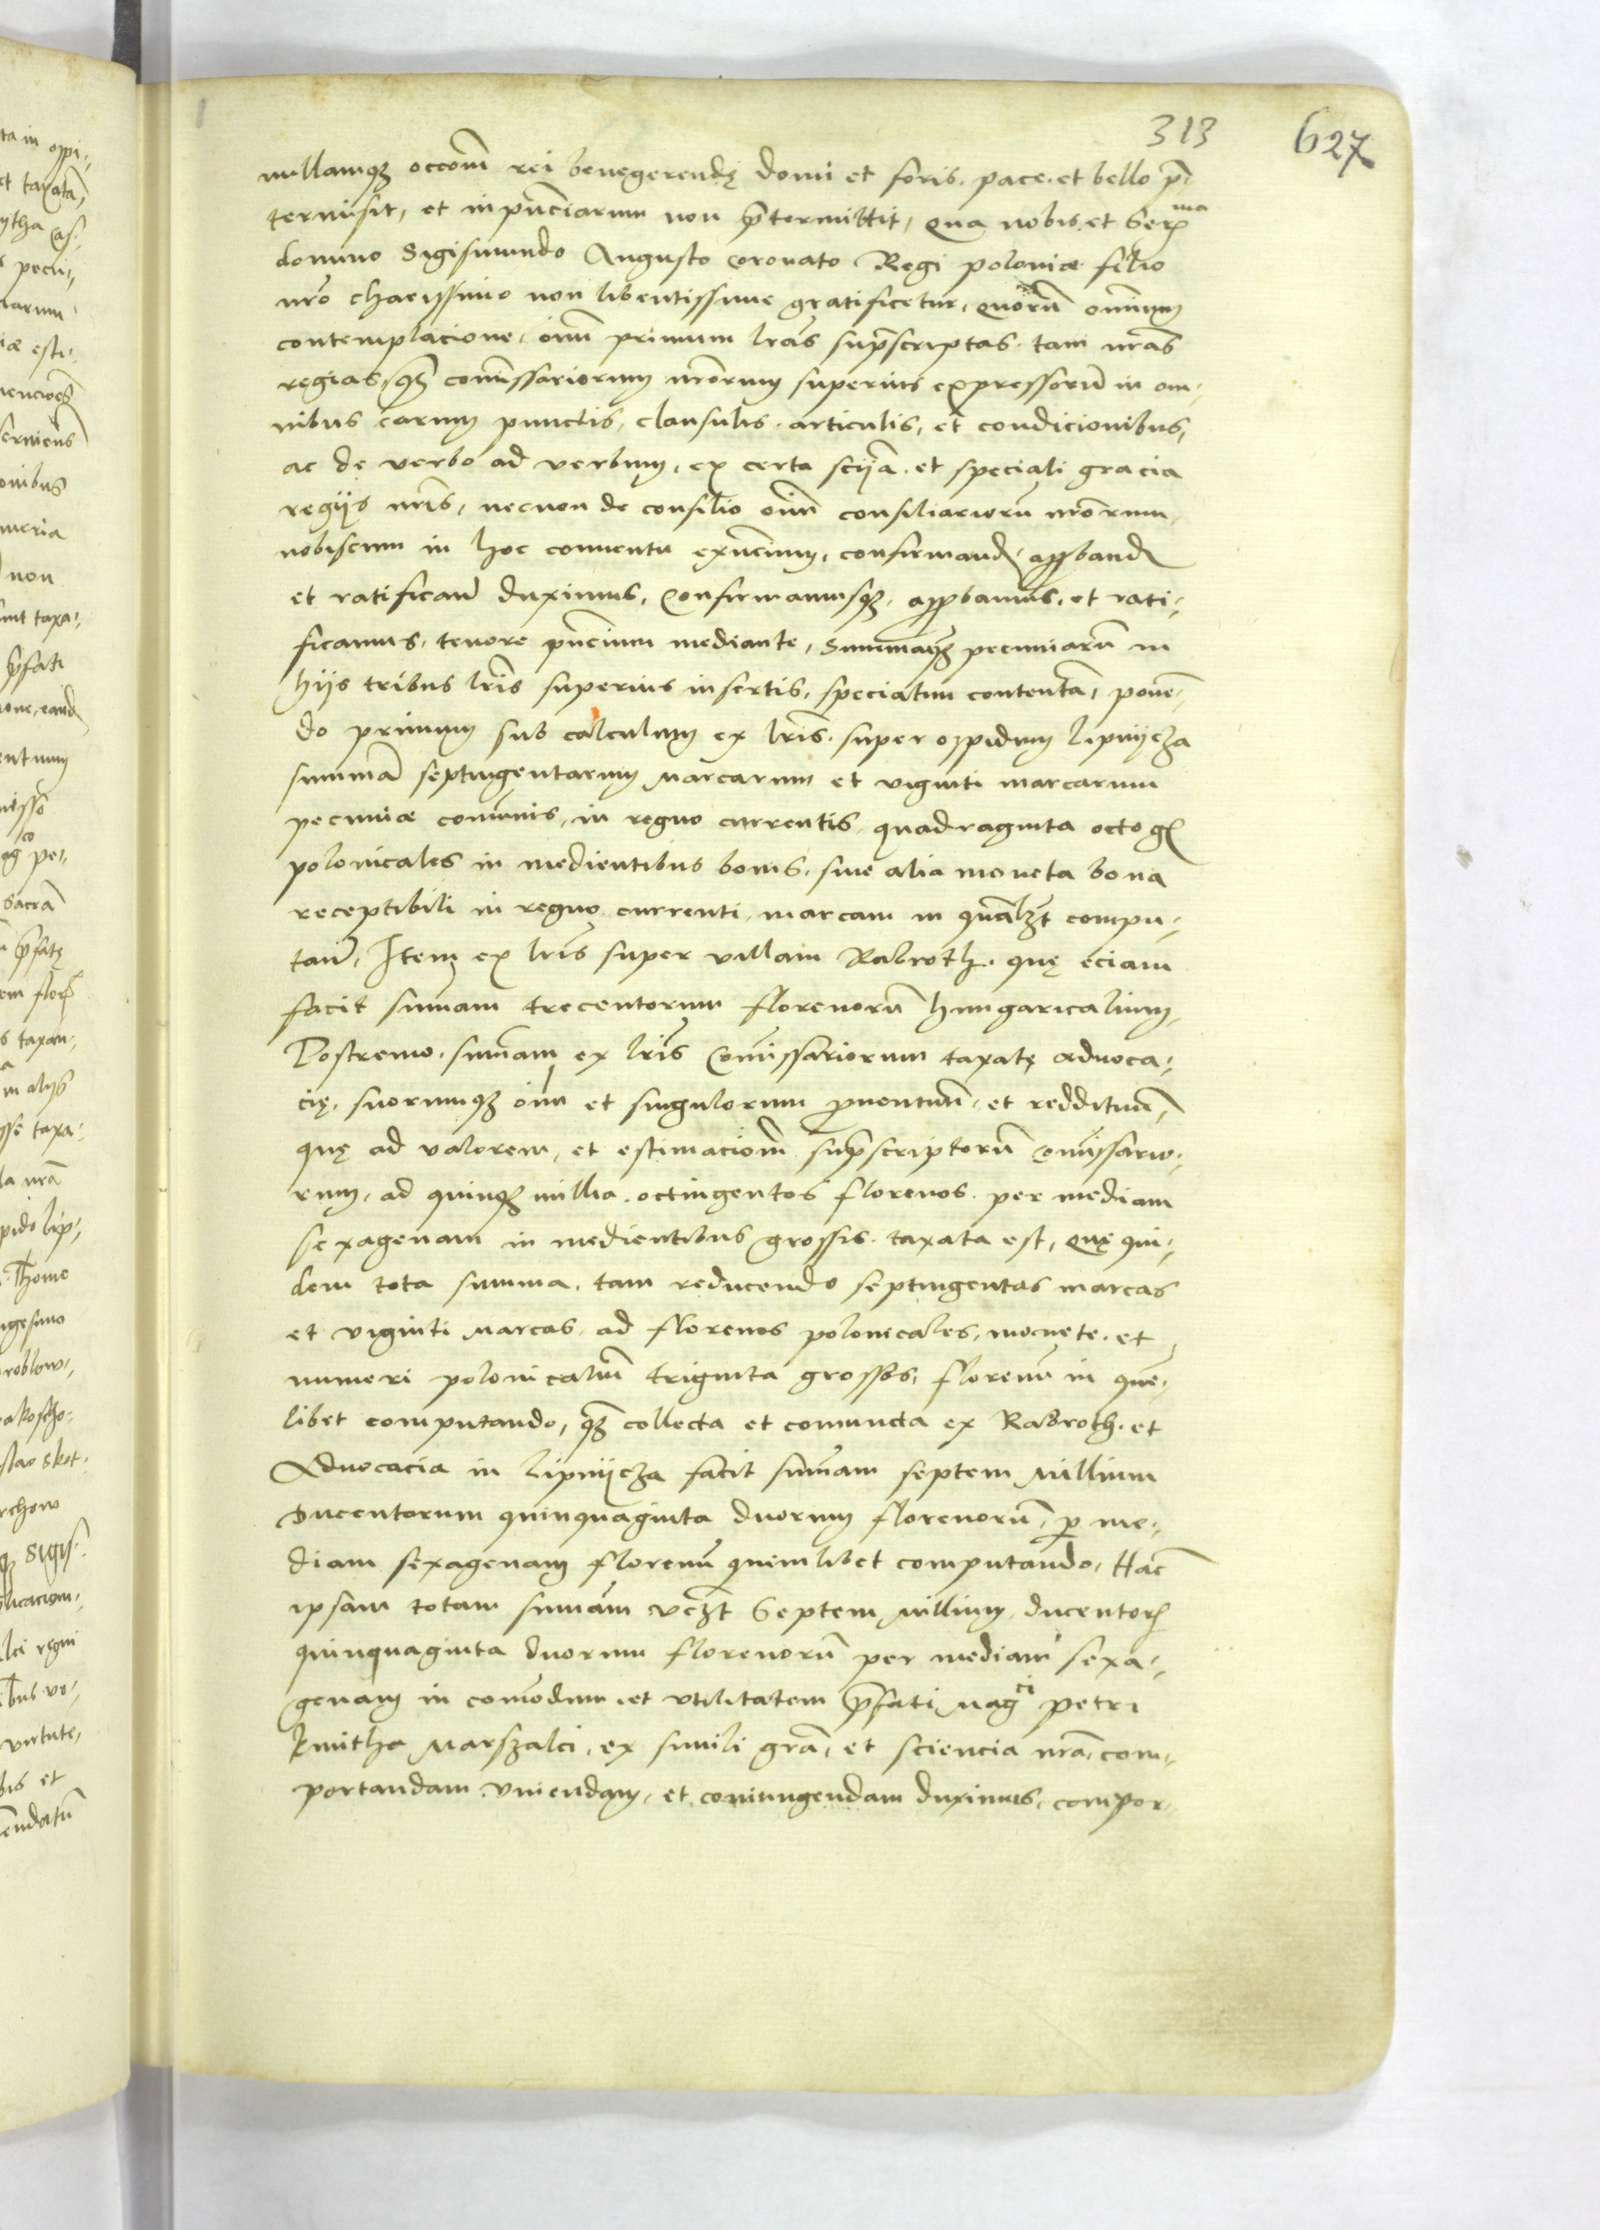 313 627
nullamqꝫ occoem̄ rei benegerendę domi et foris, pace, et bello p̄-
termisit, et in pn̄ciarum non p̄termittit, qua nobis et Serᵐᵃ
domino Sigismundo Augusto coronato Regi poloniæ filio
nr̄o charissimo non libentissime gratificetur, quorū omnium
contemplacione, oīm primum lr̄as sup̄scriptas, tam nr̄as
regias, qꝫ comissariorum nr̄orum superius expressorū in om-
nibus earum punctis, clausulis, articulis, et condicionibus,
ac de verbo ad verbum, ex certa sciīa, et speciali gracia
regijs nr̄is, necnon de consilio oīm consiliariorū nr̄orum,
nobiscum in hoc conuentu exn̄cium, confirmand, app̄band
et ratificand duximus, confirmamusqꝫ, app̄bamus, et rati-
ficamus, tenore pn̄cium mediante, Summāqꝫ pecuniarū in
hijs tribus lr̄is superius insertis, speciatim contentā, ponen-
do primum sub calculum ex lr̄is super oppidum Lipnijcza
summā septingentarum marcarum et viginti marcarum
pecuniæ comunis, in regno currentis, quadraginta octo gr
polonicales in medientibus bonis, siue alia moneta bona
receptibili in regno currenti, marcam in quālꝫt compu-
tand, Item ex lr̄is super villam Rabroth, quę eciam
facit sum̄am trecentorum florenorū hungaricalium,
Postremo, sum̄am ex lr̄is comissariorum taxatę aduoca-
cię, suorumqꝫ oīm et singulorum ꝓuentuū, et reddituū,
quę ad valorem, et estimacionē sup̄scriptorū comissario-
rum, ad quinqꝫ millia octingentos florenos per mediam
sexagenam in medientibus grossis taxata est, Quę qui-
dem tota summa, tam reducendo septingentas marcas
et viginti marcas ad florenos polonicales, monete, et
numeri polonicaliū triginta grossos, florenū in quē-
libet computando, qꝫ collecta et coniuncta ex Rabroth, et
Aduocacia in Lipnijcza facit sum̄am septem Millium
Ducentorum quinquaginta duorum florenorū, ꝑ me-
diam sexagenam florenū quemlibet computando, Hanc
ipsam totam sum̄am vꝫt Septem Millium, ducentorꝫ
quinquaginta duorum florenorū per mediam sexa-
genam in comodum, et vtilitatem p̄fati Magᶜⁱ Petri
kmitha Marszalci, ex simili grā, et sciencia nr̄a, com-
portandam vniendam, et coniungendam duximus, compor-